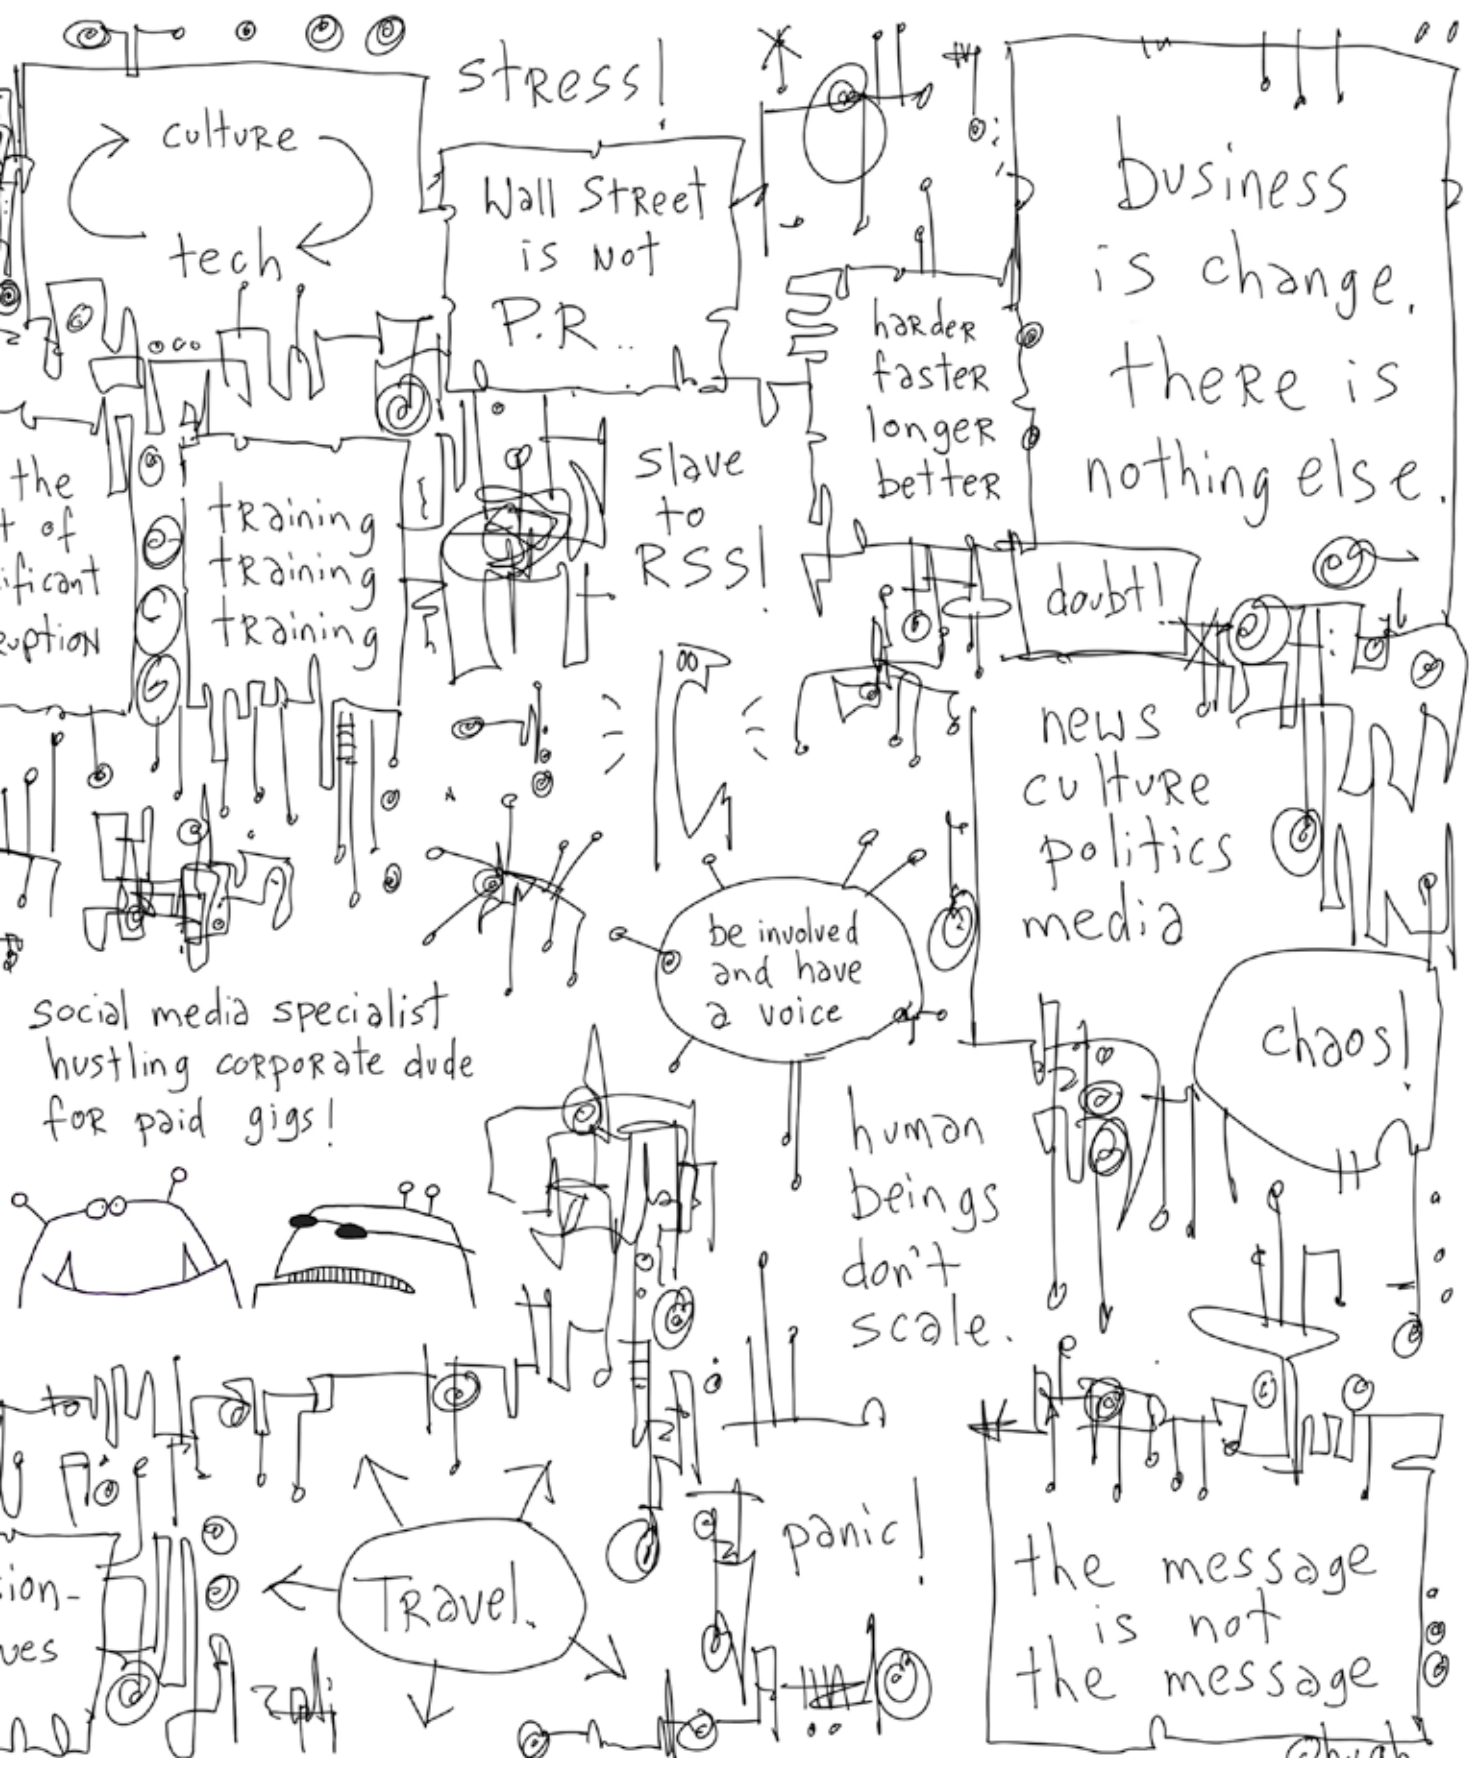 culture
tech
stress!
Wall Street
is not
P.R...
harder
faster
longer
better
business
is change.
there is
nothing else.
the
of
training
training
training
slave
to
RSS!
doubt!
news
culture
politics
media
be involved
and have
a voice
chaos!
social media specialist
hustling corporate dude
for paid gigs!
human
beings
don't
scale.
Travel.
panic!
the message
is not
the message